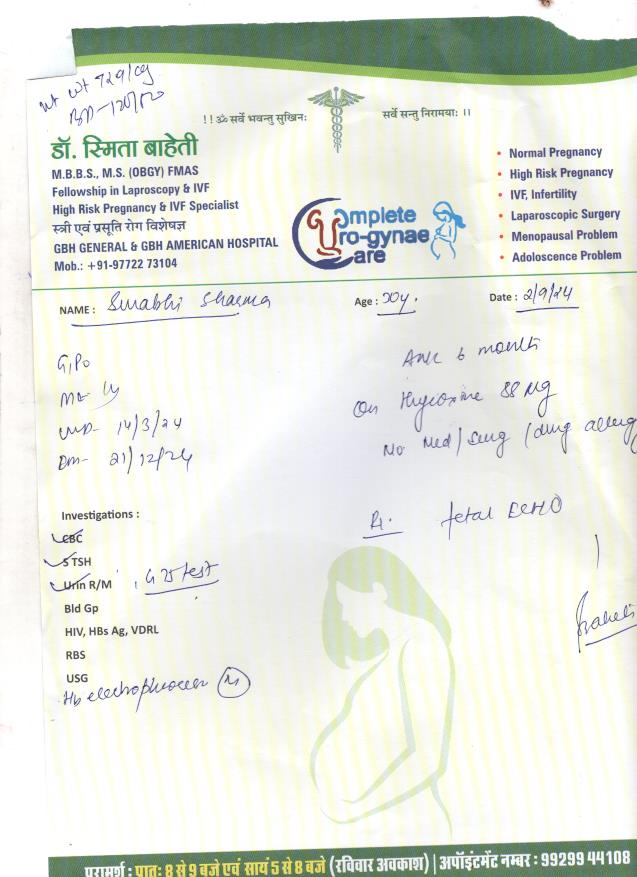 BP- 120/80
!! ॐ सर्वे भवन्तु सुखिनः सर्वे सन्तु निरामयाः ।।
डॉ. स्मिता बाहेती
M.B.B.S., M.S. (OBGY) FMAS
Fellowship in Laproscopy & IVF
High Risk Pregnancy & IVF Specialist
स्त्री एवं प्रसूति रोग विशेषज्ञ
GBH GENERAL & GBH AMERICAN HOSPITAL
Mob.: +91-97722 73104
Complete
Uro-gynae
Care
• Normal Pregnancy
• High Risk Pregnancy
• IVF, Infertility
• Laparoscopic Surgery
• Menopausal Problem
• Adoloscence Problem
NAME : Surabhi Sharma Age : 30y. Date : 2/9/24
G1P0
14/3/24
21/12/24
6 months
On 88
No Med/Surg/drug allergy
Investigations :
CBC
S TSH
Urin R/M , G 75 test
Bld Gp
HIV, HBs Ag, VDRL
RBS
USG
Hb electrophoresis (N)
R. fetal ECHO
परामर्श : प्रातः 8 से 9 बजे एवं सायं 5 से 8 बजे (रविवार अवकाश) | अपॉइंटमेंट नम्बर : 99299 44108